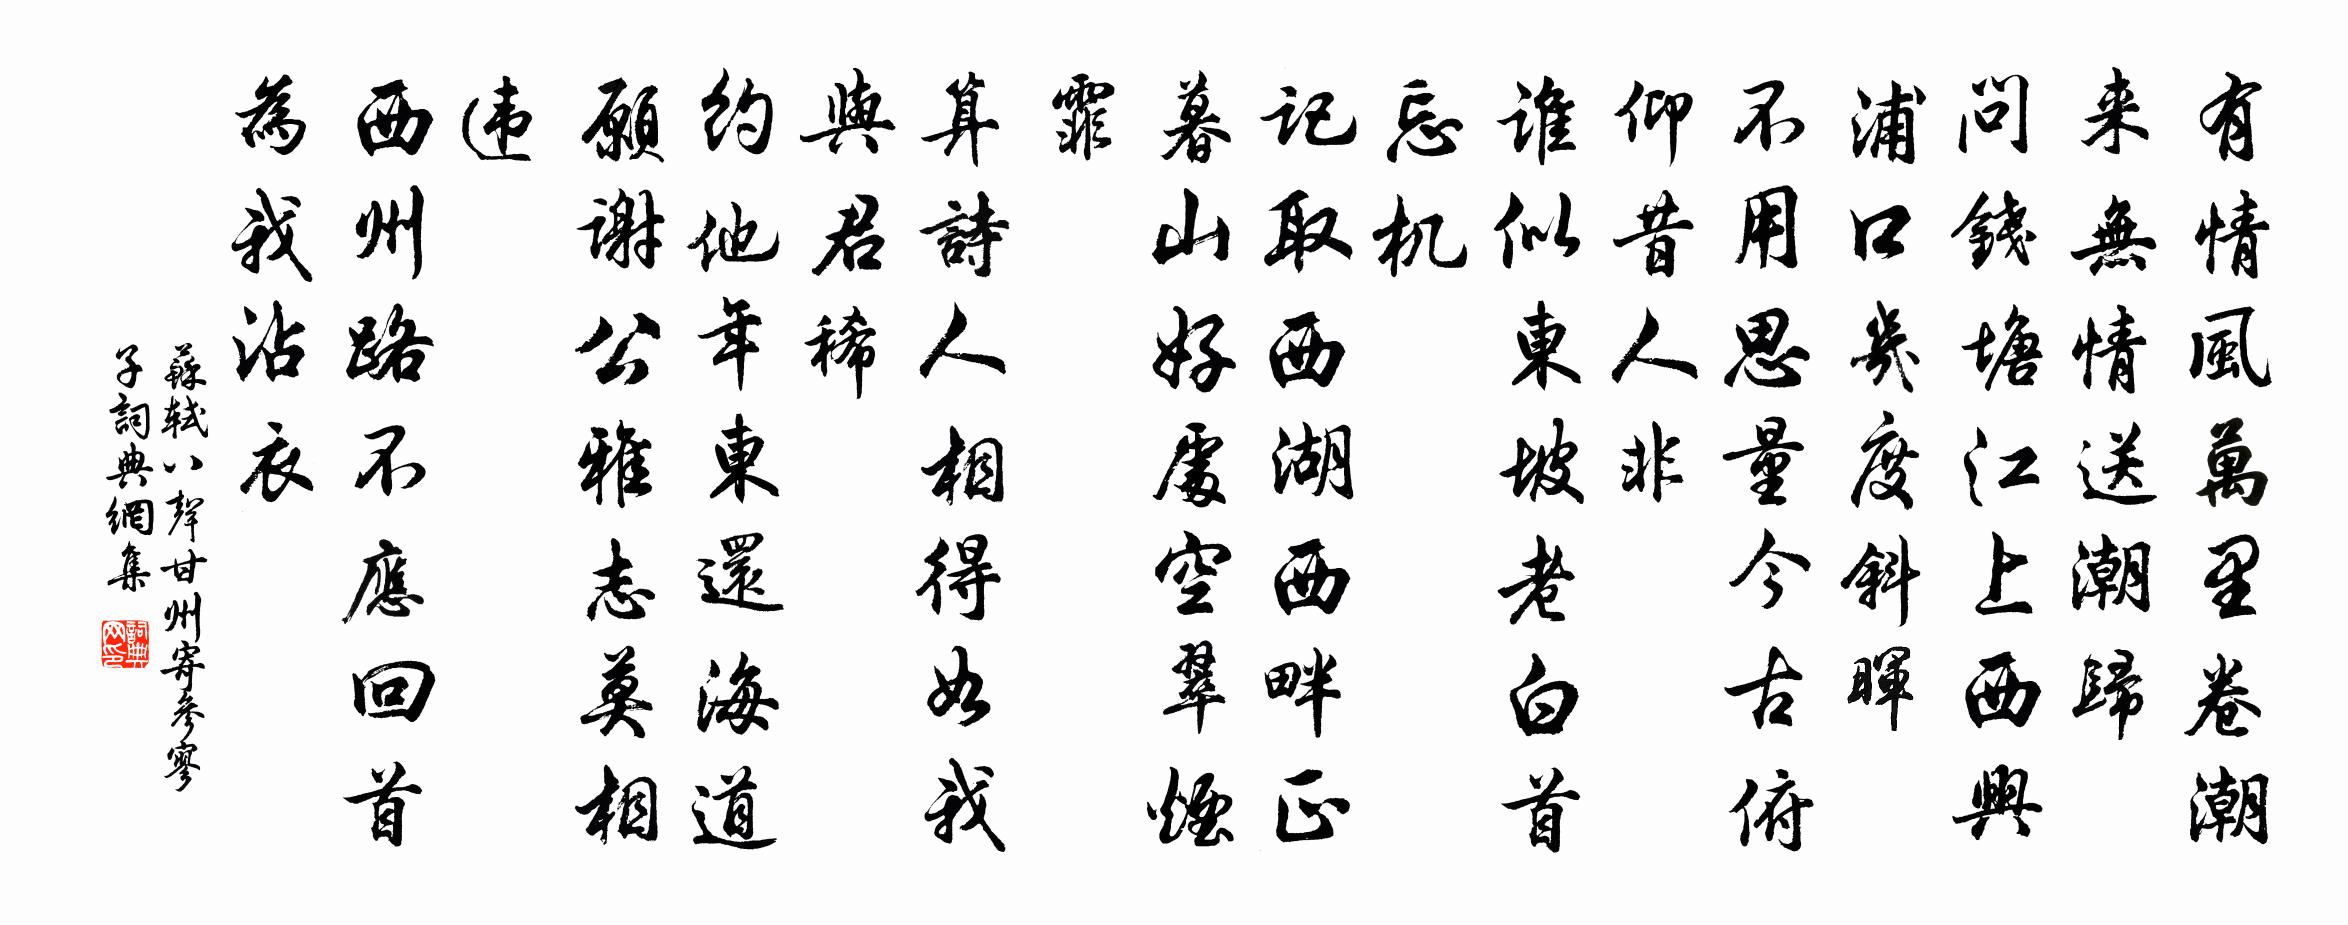 有情風萬里卷潮
来無情送潮歸
問錢塘江上西興
浦口幾度斜暉
不用思量今古俯
仰昔人非
誰似東坡老白首
忘机
記取西湖西畔正
暮山好處空翠煙
霏
算詩人相得如我
與君稀
約他年東還海道
願謝公雅志莫相
违
西州路不應回首
為我沾衣
蘇軾八聲甘州寄參寥
子詞典網集
詞典
网印